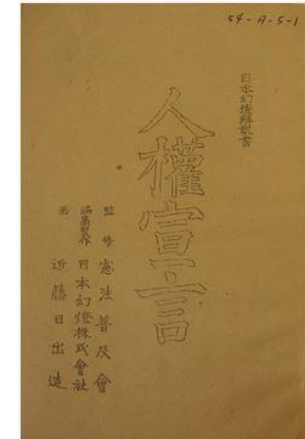 54-A-5-1
日本幻燈解説書
人權宣言
監修 憲法普及會
編集製作 日本幻燈株式會社
画 近藤日出造